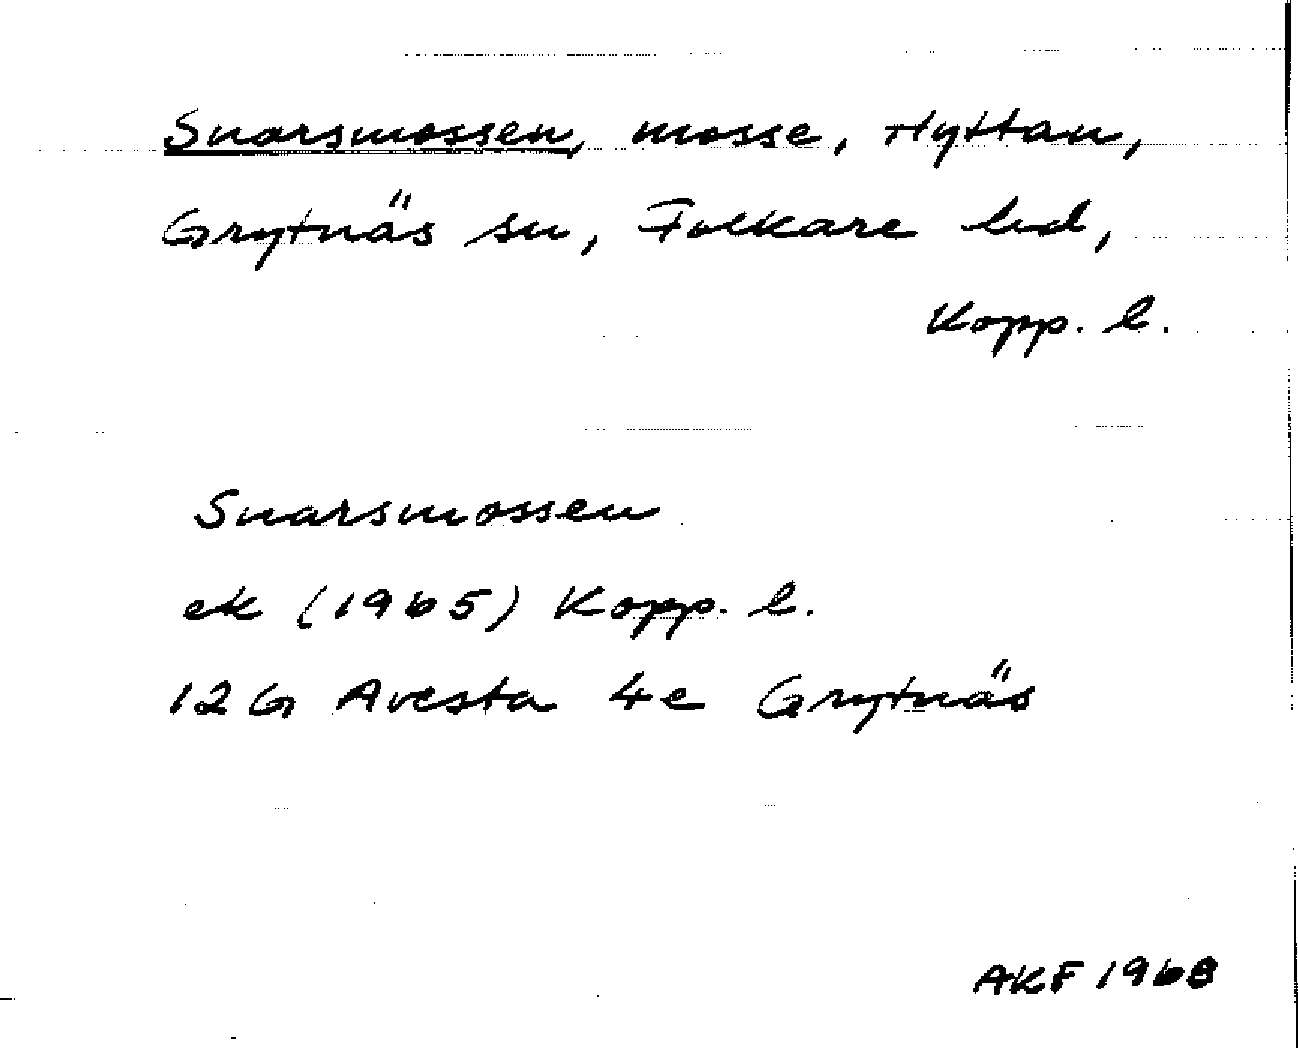 Snarsmossen, mosse, Hyttan,
Grytnäs sn, Folkare hd,
Kopp. l.
Snarsmossen
ek (1965) Kopp. l.
12 G Avesta 4e Grytnäs
AKF 1968